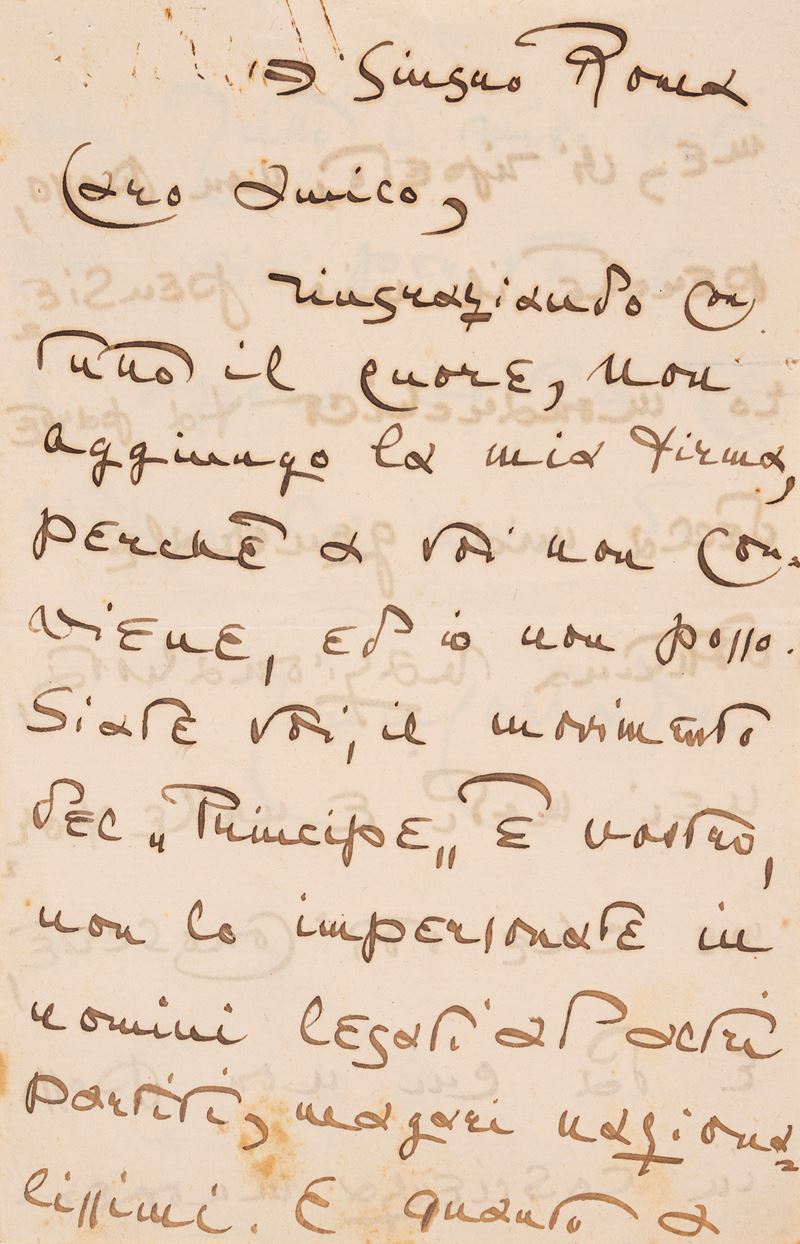 Giugno Roma
Caro amico,
ringraziando con
tutto il cuore, non
aggiungo la mia firma,
perchè a voi non con-
viene, ed io non posso.
Siate voi, il movimento
del „Principe„ È vostro,
non lo impersonate in
uomini legati ad altri
partiti, magari naziona=
lissimi. E quanto a